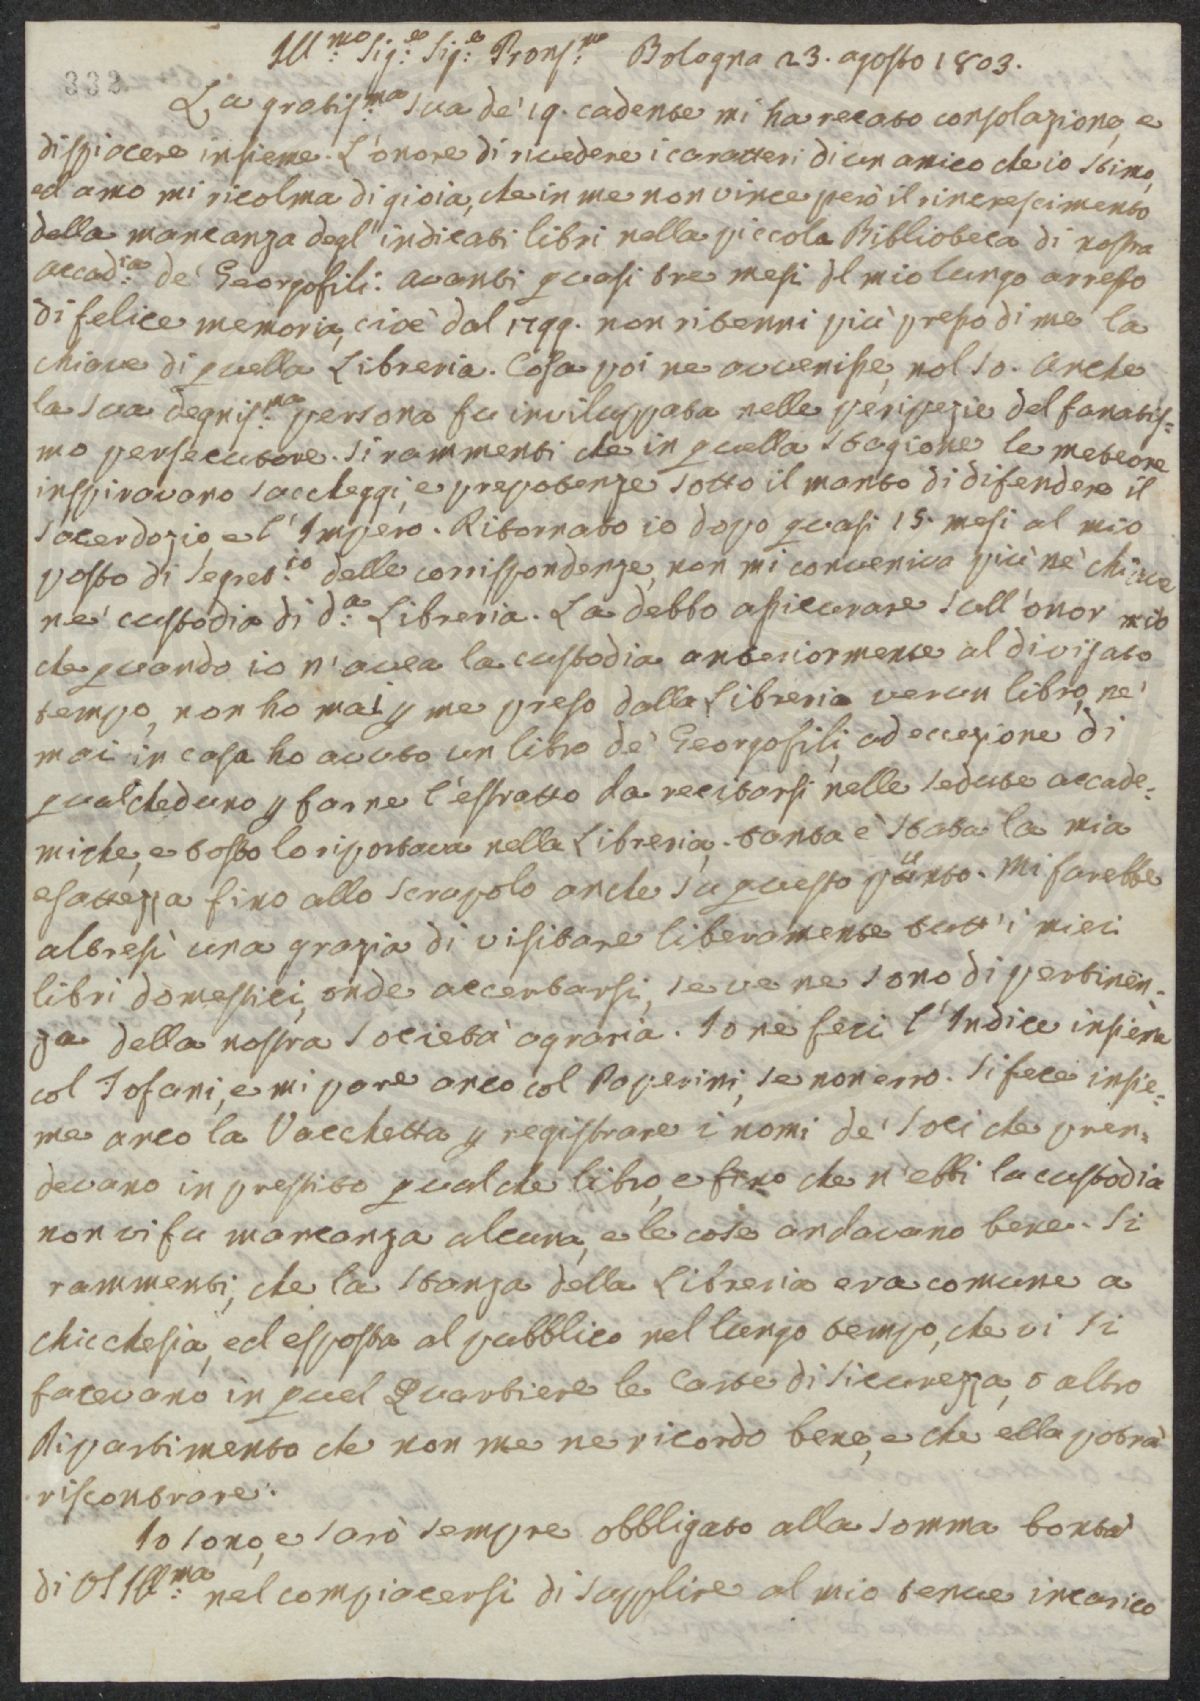 Ill:mo Sig:e Sig:e Pron:mo Bologna 23. agosto 1803.
332.
La gratis:ma sua de' 19. cadente mi ha recato consolazione, e
dispiacere insieme. L'onore di rivedere i caratteri di un amico che io stimo,
ed amo mi ricolma di gioia, che in me non vince però il rincrescimento
della mancanza degl'indicati libri nella piccola Biblioteca di nostra
Accad:ia de' Georgofili. Avanti quasi tre mesi del mio lungo arresto
di felice memoria, cioè dal 1799. non ritenni più presso di me la
chiave di quella Libreria. Cosa poi ne avvenisse, nol so. Anche
la sua degnis:ma persona fu inviluppata nelle peripezie del fanatis=
mo persecutore. Si rammenti che in quella stagione le meteore
inspiravano saccheggi, e prepotenze sotto il manto di difendere il
sacerdozio, e l'Impero. Ritornato io dopo quasi 15. mesi al mio
posto di Segret:io delle corrispondenze, non mi conveniva più nè chiave
nè custodia di d:a Libreria. La debbo assicurare sull'onor mio
che quando io n'avea la custodia anteriormente al divisato
tempo, non ho mai p me preso dalla Libreria verun libro, nè
mai in casa ho avuto un libro de' Georgofili, ad eccezione di
qualcheduno p farne l'estratto da recitarsi nelle sedute accade=
miche, e tosto lo riportava nella Libreria, tanta è stata la mia
esattezza fino allo scrupolo anche su questo punto. Mi farebbe
altresì una grazia di visitare liberamente tutt'i miei
libri domestici, onde accertarsi, se ve ne sono di pertinen=
za della nostra Società agraria. Io ne feci l'Indice insieme
col Tofani, e mi pare anco col Paperini, se non erro. Si fece insie=
me anco la Vacchetta p registrare i nomi de' soci che pren=
devano in prestito qualche libro, e fino che n'ebbi la custodia
non vi fu mancanza alcuna, e le cose andavano bene. Si
rammenti, che la stanza della Libreria era comune a
chicchesia, ed esposta al pubblico nel lungo tempo, che vi si
facevano in quel Quartiere le Carte di Sicurezza, o altro
Ripartimento che non me ne ricordo bene, e che ella potrà
riscontrare.
Io sono, e sarò sempre obbligato alla somma bontà
di VS Ill:ma nel compiacersi di supplire al mio tenue incarico